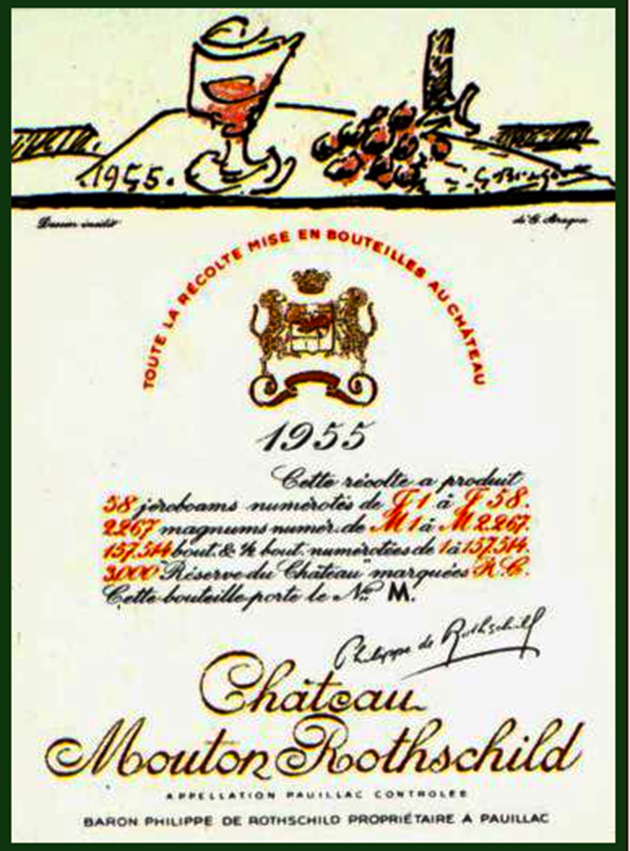 1955.
G. Braque
Dessin inédit
de G. Braque
TOUTE LA RÉCOLTE MISE EN BOUTEILLES AU CHÂTEAU
1955
Cette récolte a produit
58 jeroboams numérotés de J 1 à J 58.
2267 magnums numér. de M 1 à M 2.267.
157.514 bout. & ½ bout. numérotées de 1 à 157.514.
3.000 "Réserve du Château" marquées R.C.
Cette bouteille porte le No M.
Philippe de Rothschild
Château
Mouton Rothschild
APPELLATION PAUILLAC CONTROLÉE
BARON PHILIPPE DE ROTHSCHILD PROPRIÉTAIRE A PAUILLAC